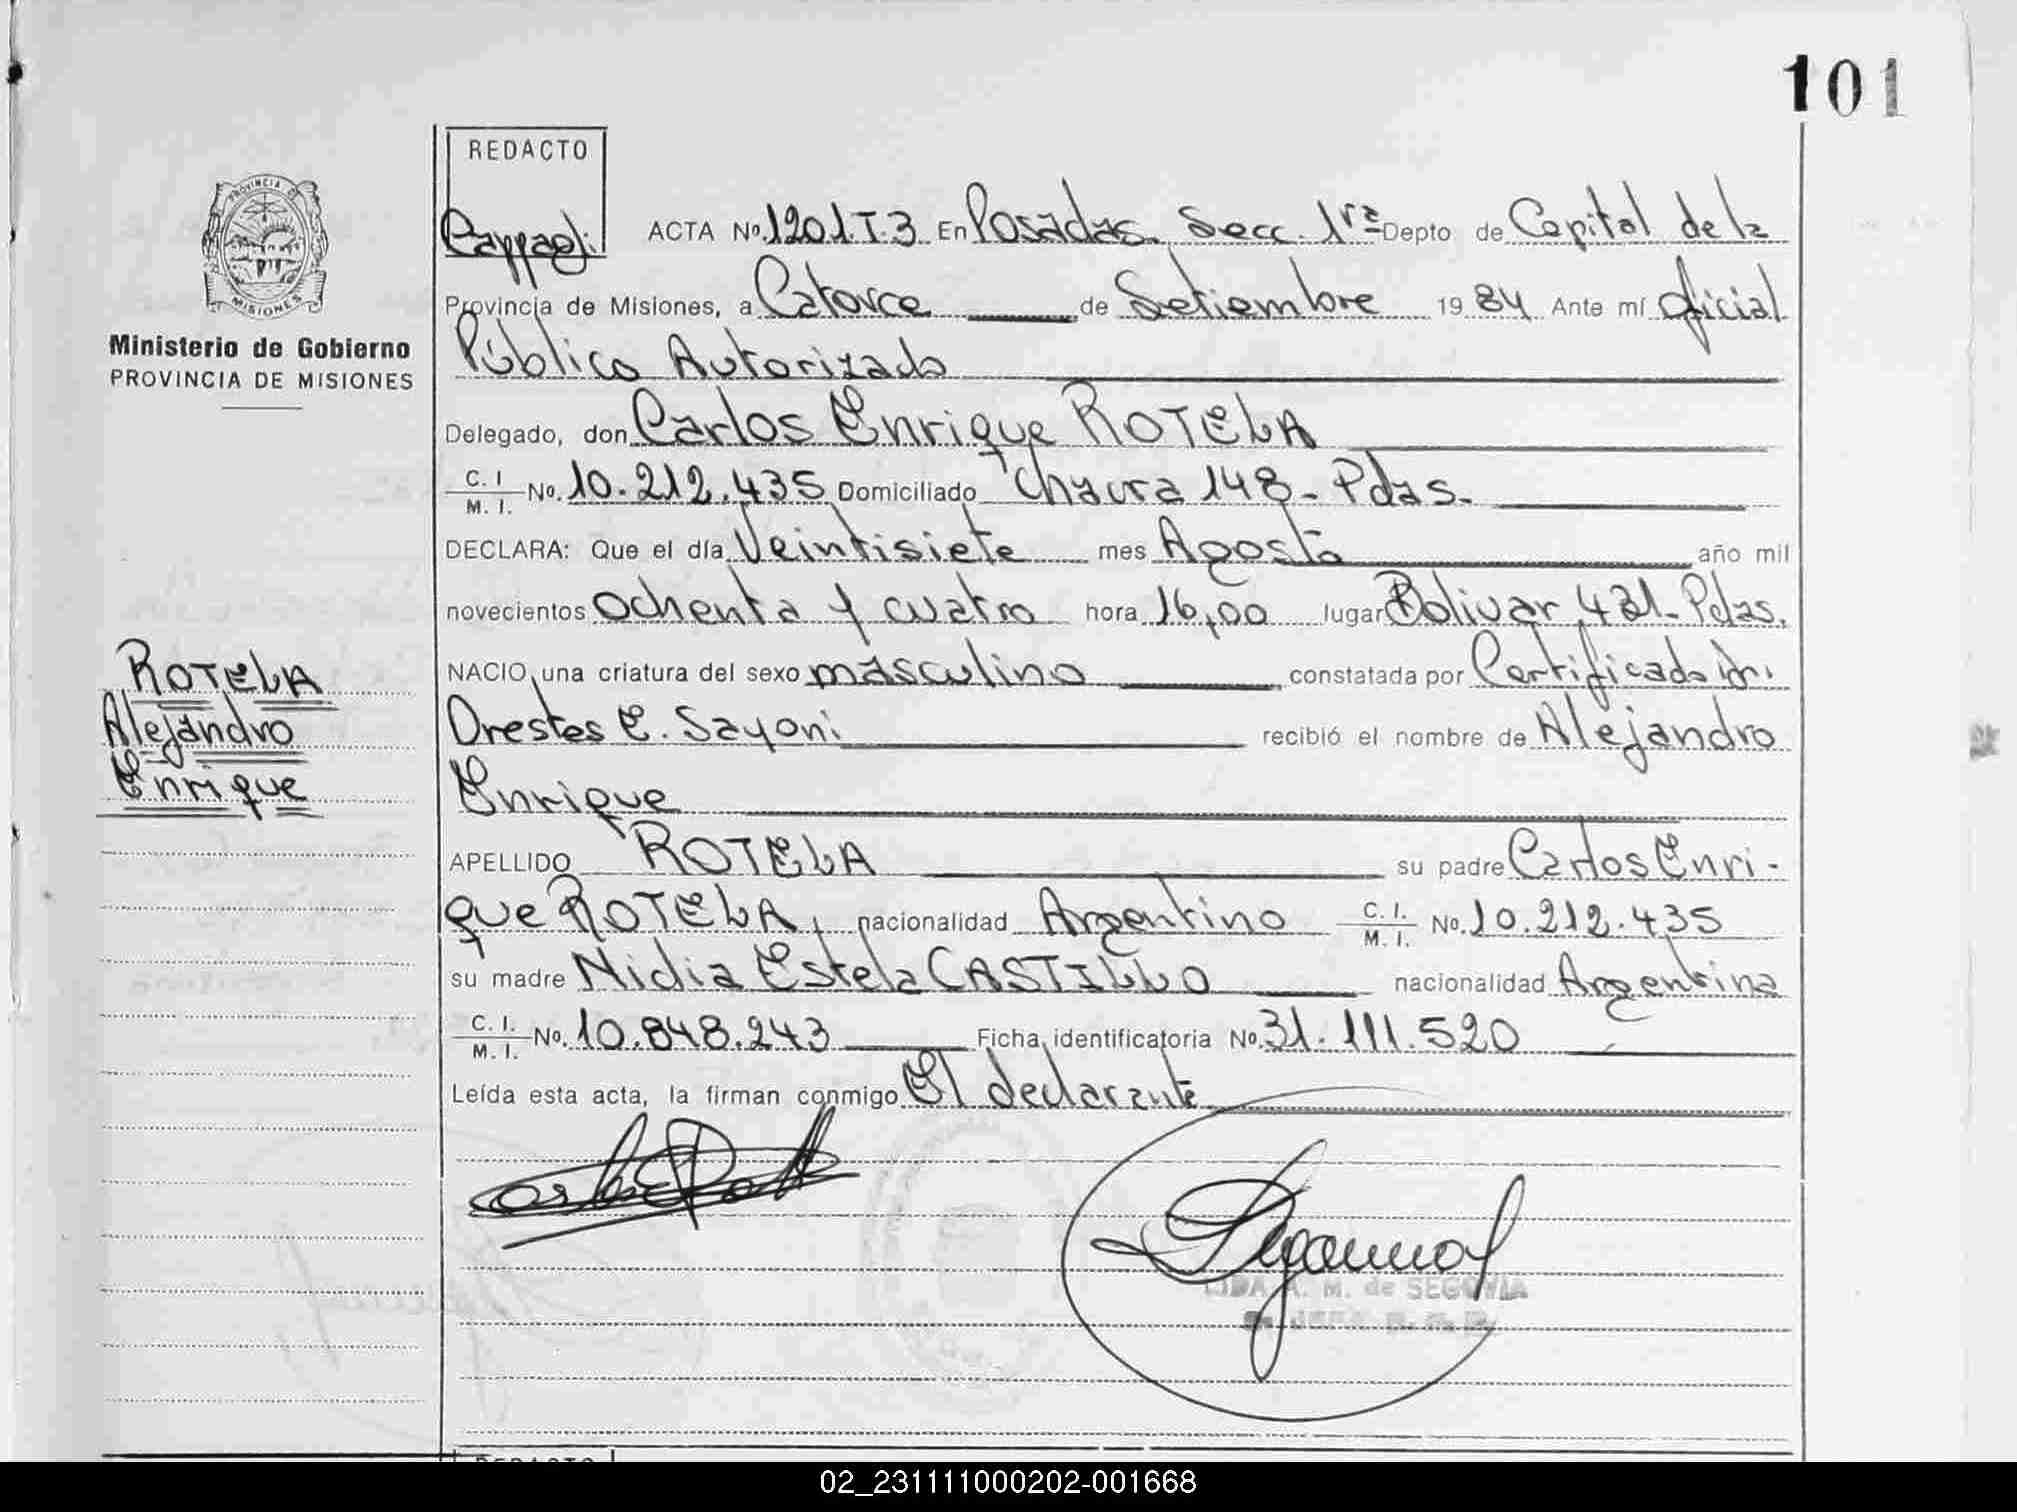 101
REDACTO
PROVINCIA DE
MISIONES
Ministerio de Gobierno
PROVINCIA DE MISIONES
ACTA Nº 1201.T.3 En Posadas Secc. 1ra Depto de Capital de la
Provincia de Misiones, a Catorce de Setiembre 1984 Ante mí Oficial
Público Autorizado
Delegado, don Carlos Enrique ROTELA
C. I. M. I. No. 10.212.435 Domiciliado Chacra 148 - Pdas.
DECLARA: Que el día Veintisiete mes Agosto año mil
novecientos Ochenta y cuatro hora 16,00 lugar Bolivar 421 - Pdas.
NACIO una criatura del sexo masculino constatada por Certificado Dr.
Orestes E. Sayoni recibió el nombre de Alejandro
Enrique
APELLIDO ROTELA su padre Carlos Enri-
que ROTELA, nacionalidad Argentino C. I. M. I. No. 10.212.435
su madre Nidia Estela CASTILLO nacionalidad Argentina
C. I. M. I. No. 10.848.243 Ficha identificatoria No. 31.111.520
Leída esta acta, la firman conmigo El declarante
ROTELA
Alejandro
Enrique
LIDA A. M. de SEGOVIA
REDACTO
02_231111000202-001668